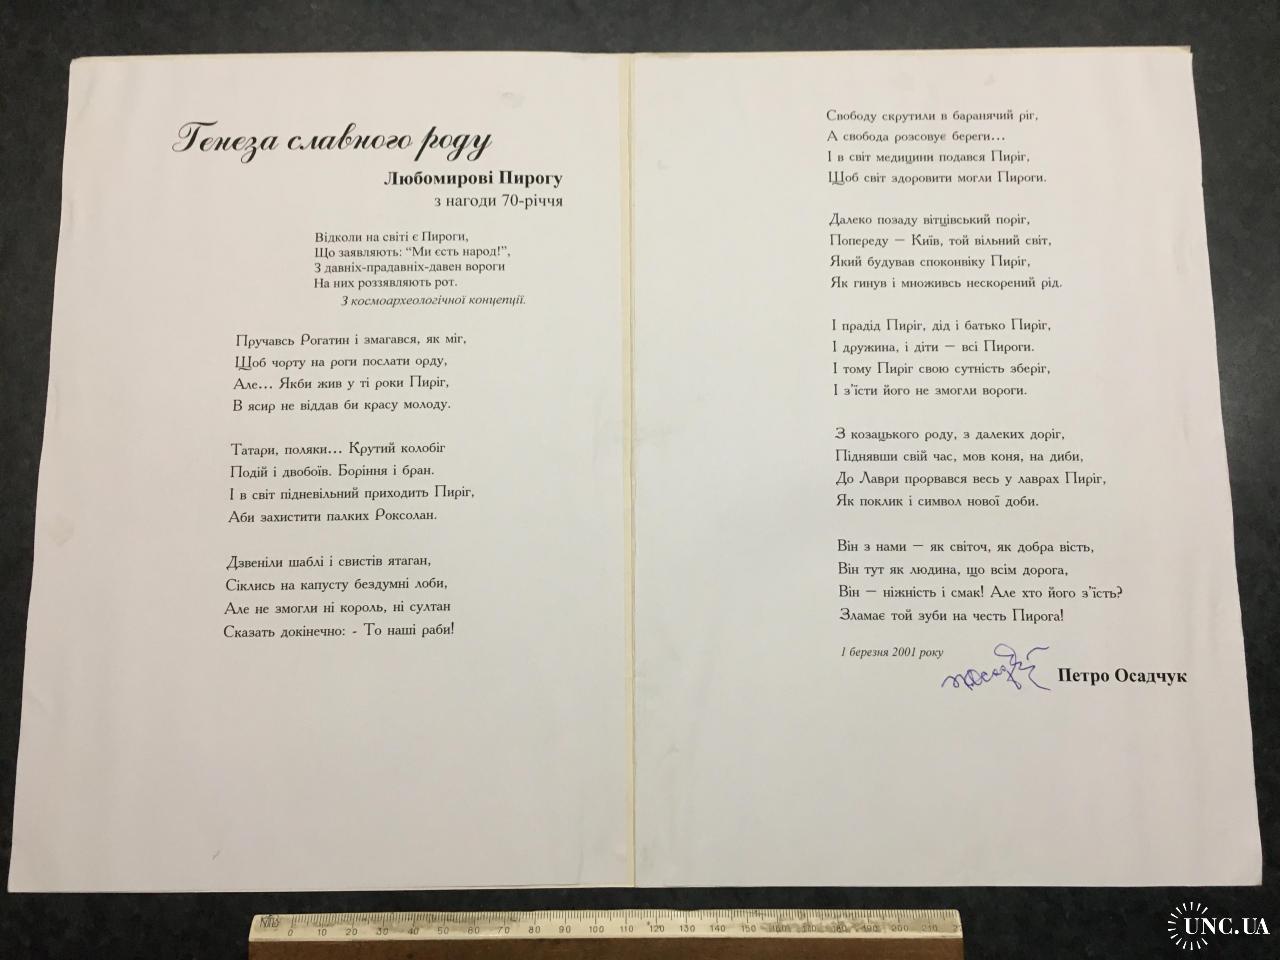 Генеза славного роду
Любомирові Пирогу
з нагоди 70-річчя
Відколи на світі є Пироги,
Що заявляють: “Ми єсть народ!”,
З давніх-прадавніх-давен вороги
На них роззявляють рот.
З космоархеологічної концепції.
Пручавсь Рогатин і змагався, як міг,
Щоб чорту на роги послати орду,
Але... Якби жив у ті роки Пиріг,
В ясир не віддав би красу молоду.
Татари, поляки... Крутий колобіг
Подій і двобоїв. Боріння і бран.
І в світ підневільний приходить Пиріг,
Аби захистити палких Роксолан.
Дзвеніли шаблі і свистів ятаган,
Сіклись на капусту бездумні лоби,
Але не змогли ні король, ні султан
Сказать докінечно: - То наші раби!
Свободу скрутили в баранячий ріг,
А свобода розсовує береги...
І в світ медицини подався Пиріг,
Щоб світ здоровити могли Пироги.
Далеко позаду вітцівський поріг,
Попереду – Київ, той вільний світ,
Який будував споконвіку Пиріг,
Як гинув і множивсь нескорений рід.
І прадід Пиріг, дід і батько Пиріг,
І дружина, і діти – всі Пироги.
І тому Пиріг свою сутність зберіг,
І з’їсти його не змогли вороги.
З козацького роду, з далеких доріг,
Піднявши свій час, мов коня, на диби,
До Лаври прорвався весь у лаврах Пиріг,
Як поклик і символ нової доби.
Він з нами – як світоч, як добра вість,
Він тут як людина, що всім дорога,
Він – ніжність і смак! Але хто його з’їсть?
Зламає той зуби на честь Пирога!
1 березня 2001 року
Петро Осадчук
0 10 20 30 40 50 60 70 80 90 100 110 120 130 140 150 160 170 180 190 200 210
UNC.UA